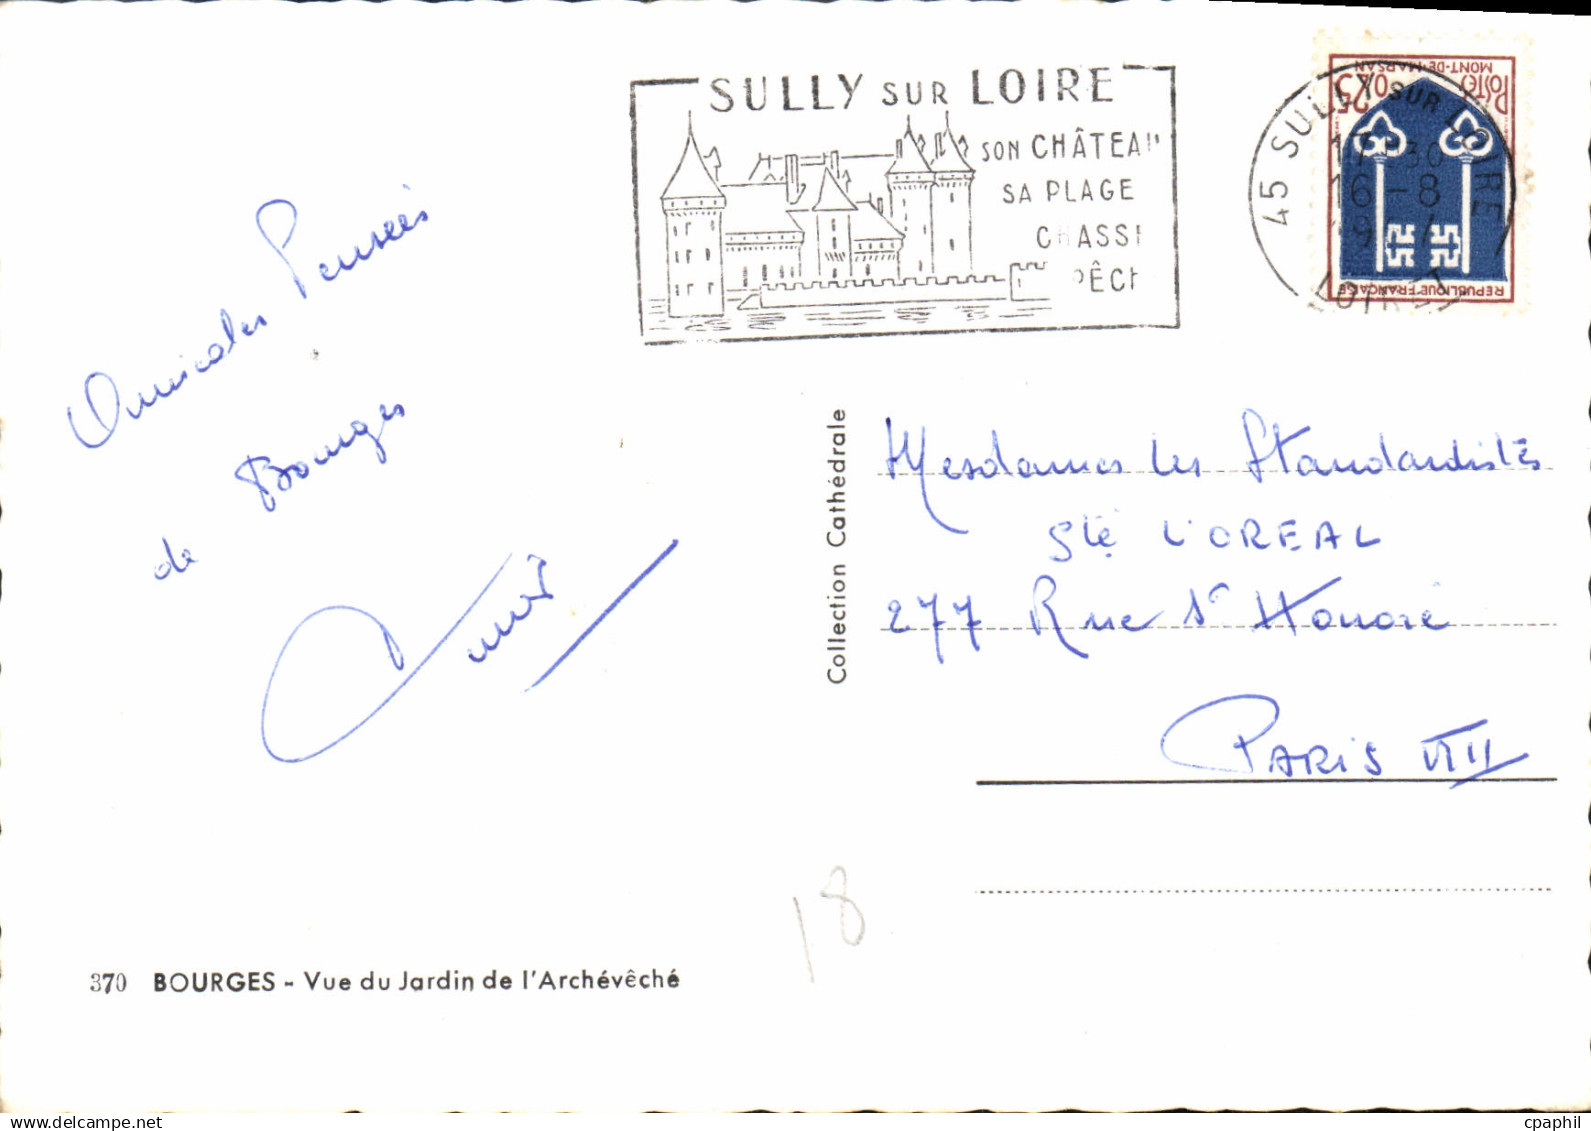 SULLY SUR LOIRE
SON CHÂTEAU
SA PLAGE
CHASSE
PÊCHE
45 SULLY SUR LOIRE
17-30
16-8
LOIRET
POSTES 0,25
MONT-DE-MARSAN
REPUBLIQUE FRANÇAISE
Amicales Pensées
de Bourges
Collection Cathédrale
Mesdames les Standardistes
Sté L'OREAL
277 Rue St Honoré
PARIS VIII
18
370 BOURGES - Vue du Jardin de l'Archévêché
delcampe.net
cpaphil